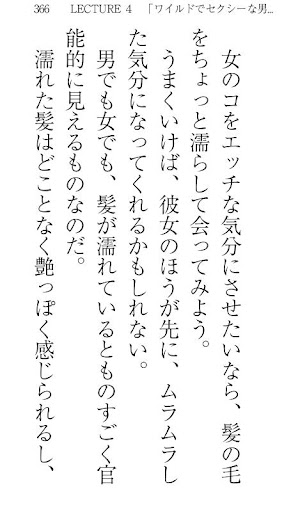 366 LECTURE 4 「ワイルドでセクシーな男…
女のコをエッチな気分にさせたいなら、髪の毛
をちょっと濡らして会ってみよう。
うまくいけば、彼女のほうが先に、ムラムラし
た気分になってくれるかもしれない。
男でも女でも、髪が濡れているとものすごく官
能的に見えるものなのだ。
濡れた髪はどことなく艶っぽく感じられるし、